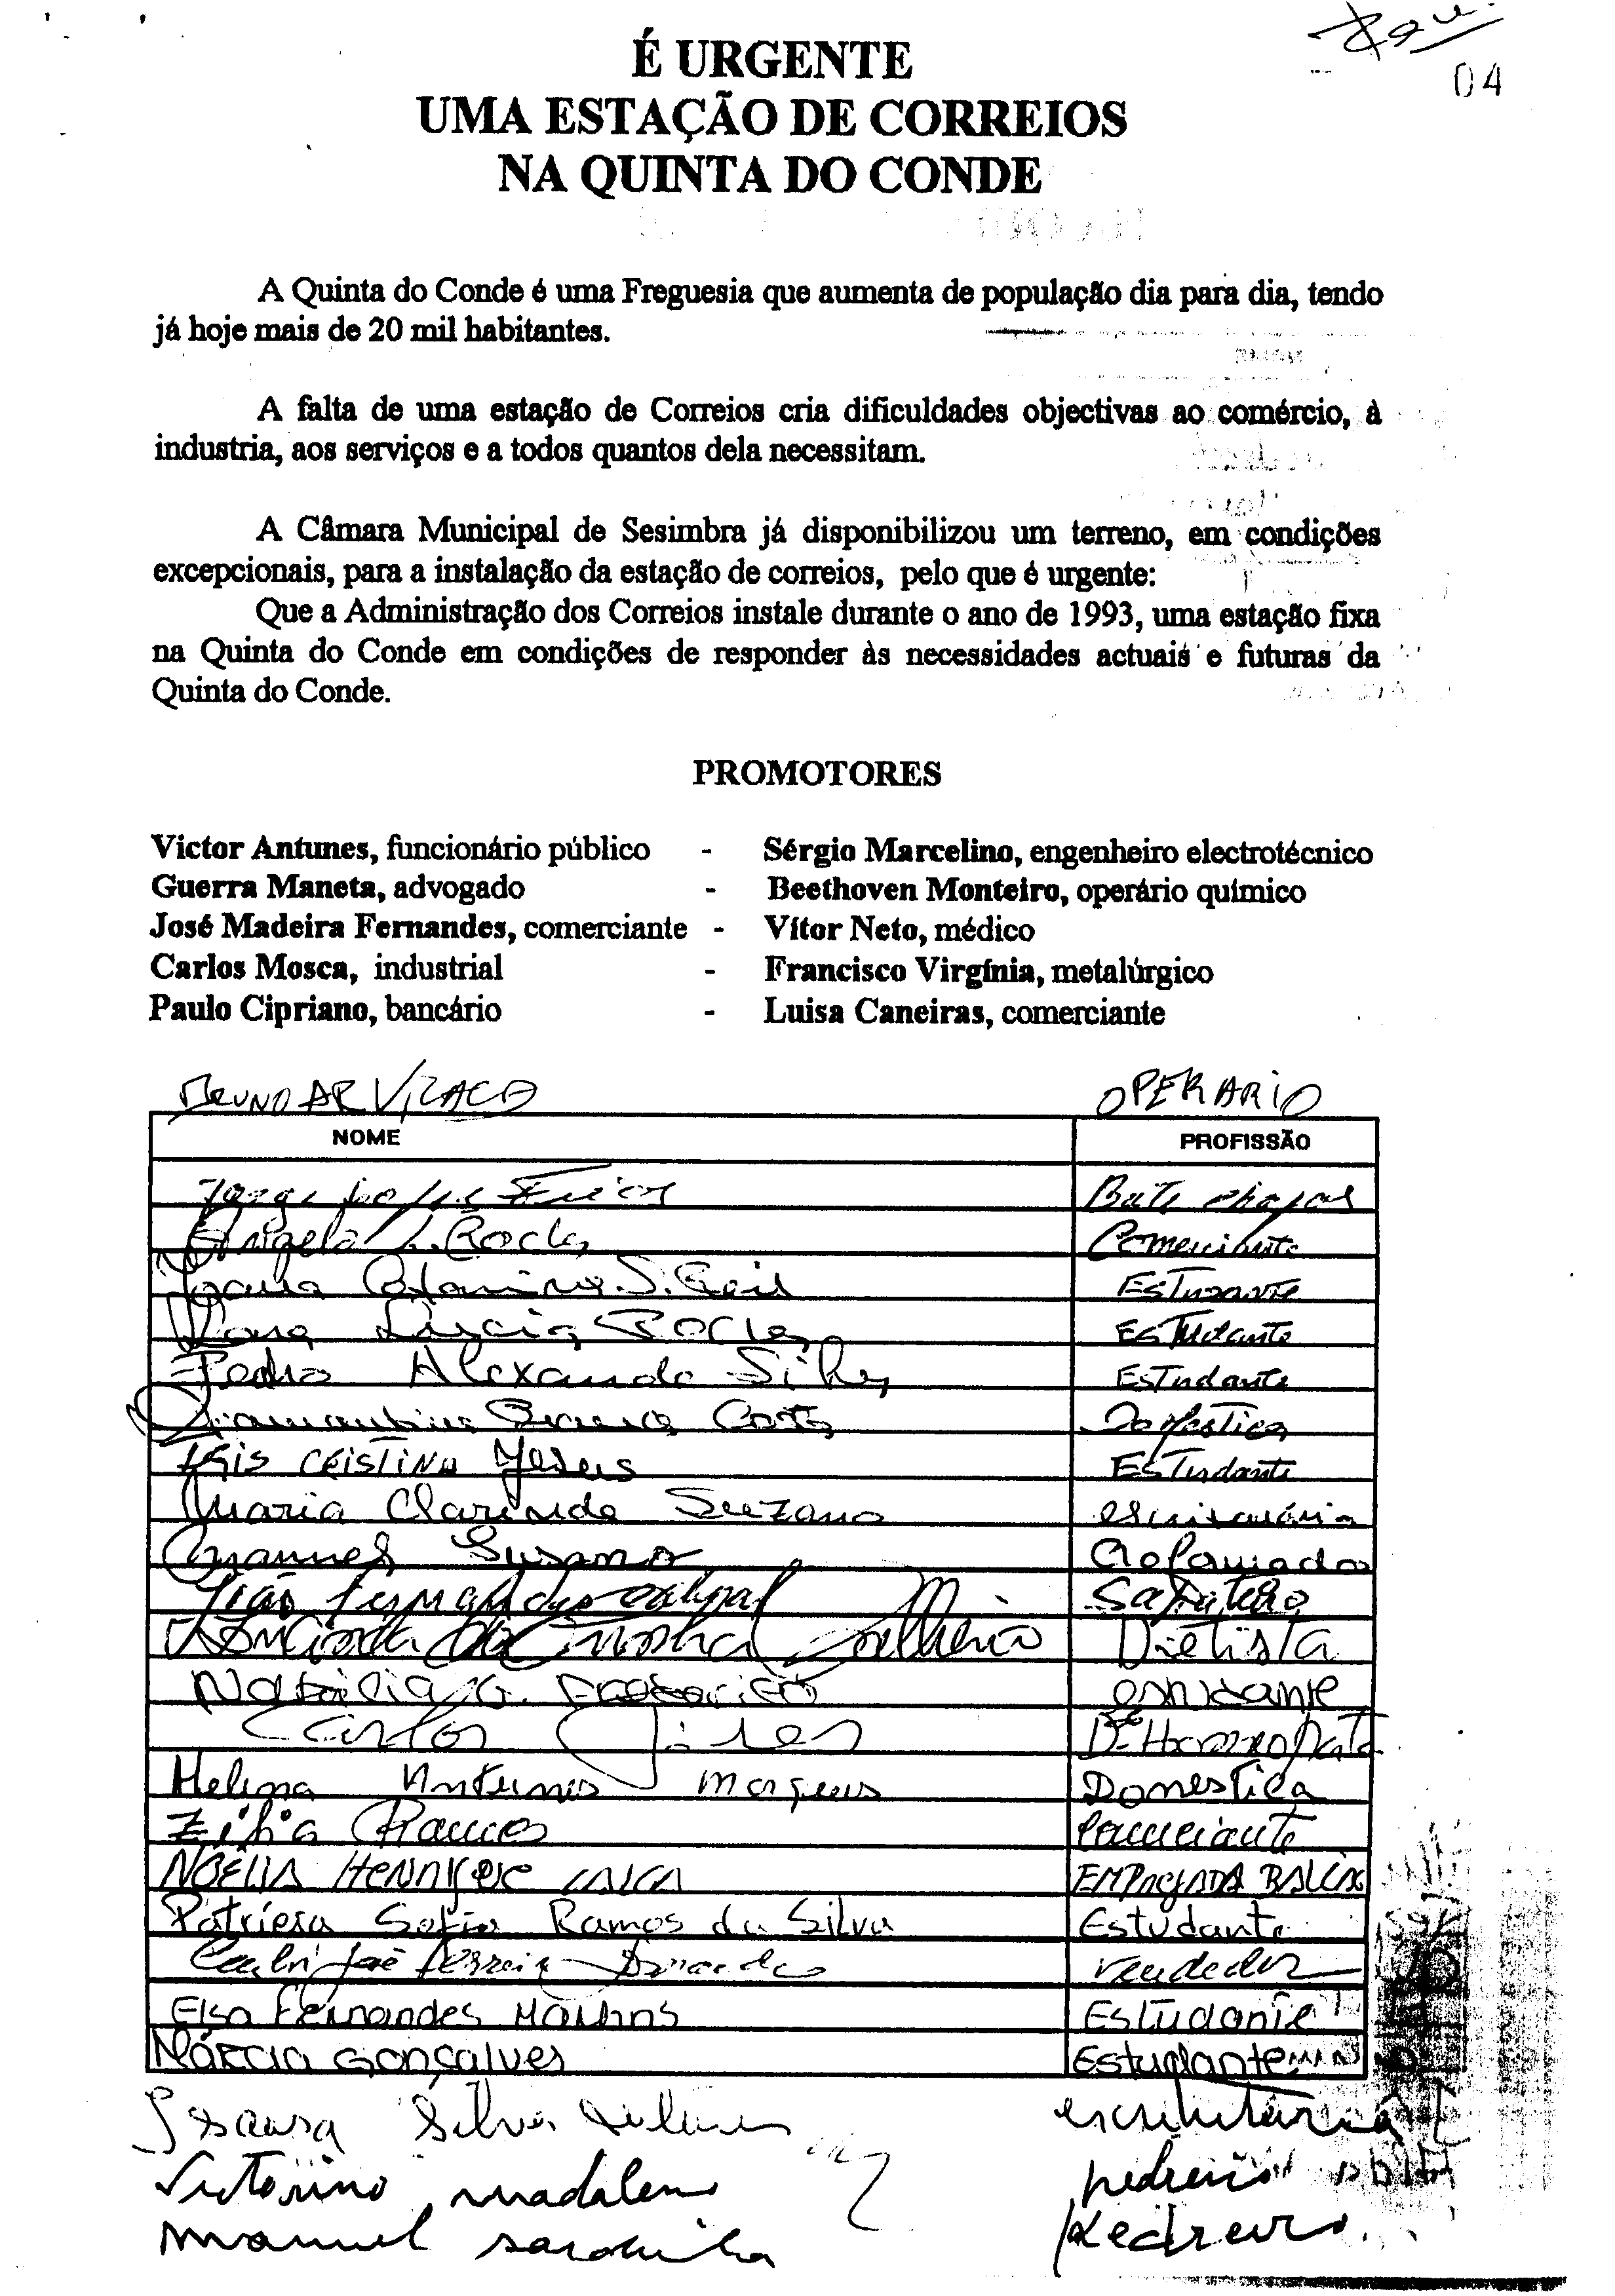 04
É URGENTE
UMA ESTAÇÃO DE CORREIOS
NA QUINTA DO CONDE
A Quinta do Conde é uma Freguesia que aumenta de população dia para dia, tendo
já hoje mais de 20 mil habitantes.
A falta de uma estação de Correios cria dificuldades objectivas ao comércio, à
industria, aos serviços e a todos quantos dela necessitam.
A Câmara Municipal de Sesimbra já disponibilizou um terreno, em condições
excepcionais, para a instalação da estação de correios, pelo que é urgente:
Que a Administração dos Correios instale durante o ano de 1993, uma estação fixa
na Quinta do Conde em condições de responder às necessidades actuais e futuras da
Quinta do Conde.
PROMOTORES
Victor Antunes, funcionário público - Sérgio Marcelino, engenheiro electrotécnico
Guerra Maneta, advogado - Beethoven Monteiro, operário químico
José Madeira Fernandes, comerciante - Vítor Neto, médico
Carlos Mosca, industrial - Francisco Virgínia, metalúrgico
Paulo Cipriano, bancário - Luisa Caneiras, comerciante
OPERARIO
NOME PROFISSÃO
Bate chapas
Angela Comerciante
Estudante
Estudante
Pedro Alexandre Silva Estudante
Costa Domestica
Cristina Estudante
Maria Clarinda Suzano escriturária
Suzano
João Fernando Sapateiro
da Dietista
Natália G. estudante
Carlos
Helena Antunes Marques Domestica
Zilia Ramos Comerciante
NOÉLIA
Patricia Sofia Ramos da Silva Estudante
José Ferreira vendedor
Elsa Fernandes Martins Estudante
Márcia Gonçalves Estudante
Isaura Silva escriturária
Victorino madalena pedreiro
manuel pedreiro